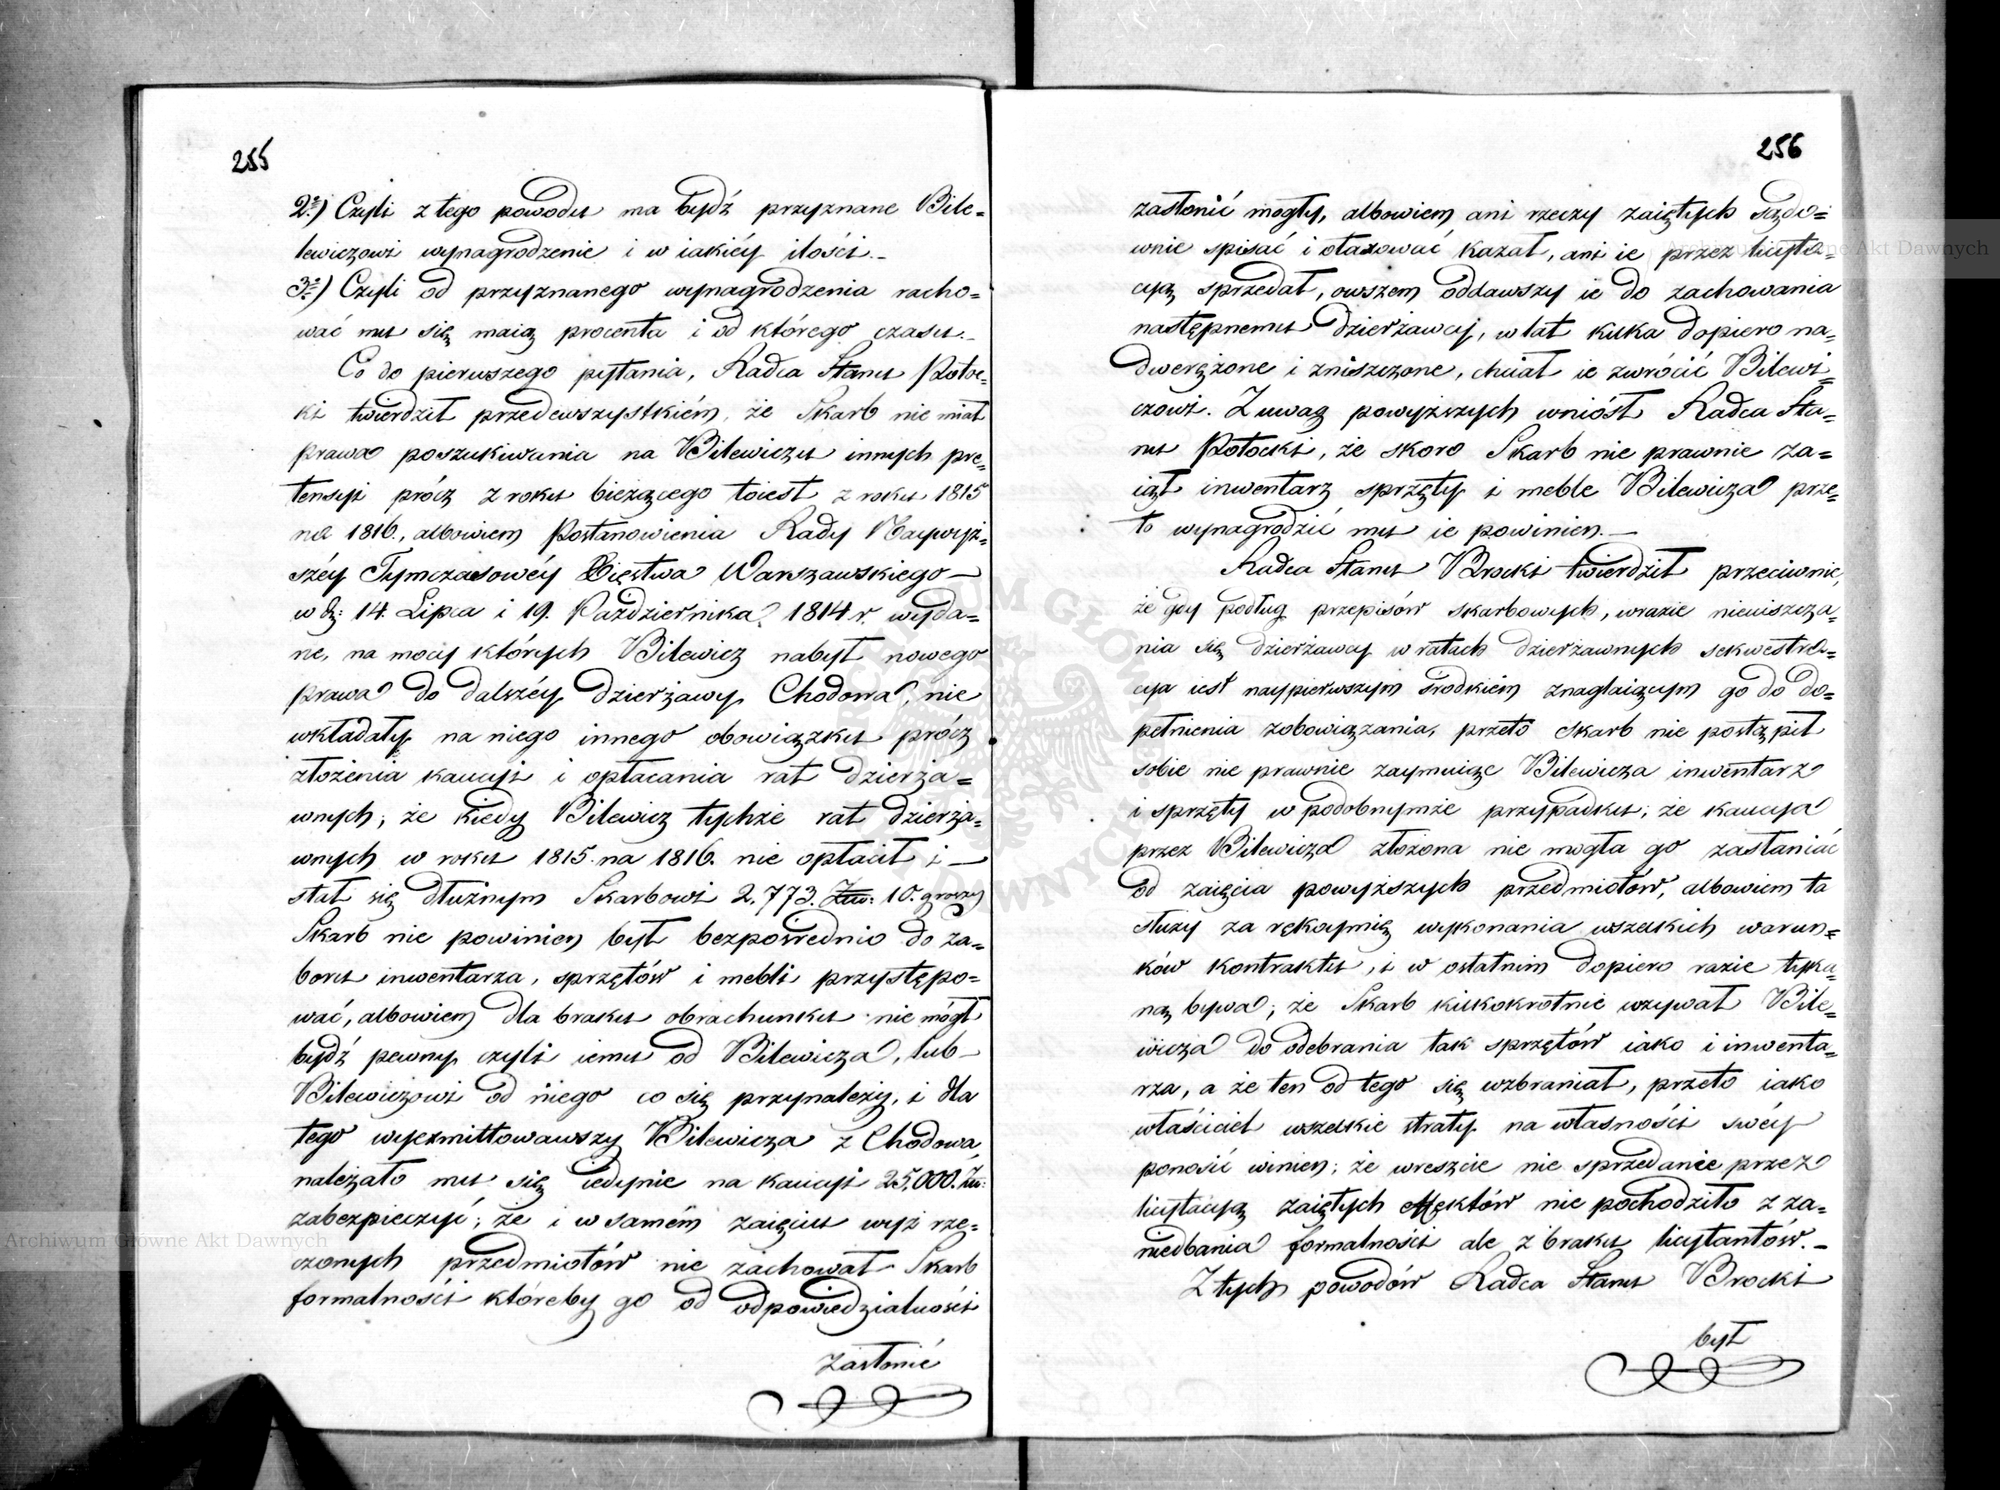 255
2re) Czyli z tego powodu ma bydź przyznane Bile=
lewiczowi wynagrodzenie i w iakiéy ilości.–
3cie) Czyli od przyznanego wynagrodzenia racho=
wać mu się maią procenta i od którego czasu.–
Co do pierwszego pytania, Radca Stanu Potoc=
ki twierdził przedewszystkiém, że Skarb nie miał
prawa poszukiwania na Bilewiczu innych pre=
tensyi prócz z roku bieżącego toiest z roku 1815
na 1816., albowiem Postanowienia Rady Naywyż=
széy Tymczasowéy Xięstwa Warszawskiego –
w d: 14. Lipca i 19. Października 1814 r. wyda=
ne, na mocy których Bilewicz nabył nowego
prawa do dalszéy dzierżawy Chodowa, nie
wkładały na niego innego obowiązku prócz
złożenia kaucyi i opłacania rat dzierża=
wnych; że kiedy Bilewicz tychże rat dzierża=
wnych w roku 1815. na 1816. nie opłacił i –
stał się dłużnym Skarbowi 2,773. Złw: 10. groszy
Skarb nie powinien był bezpośrednio do za=
boru inwentarza, sprzętów i mebli przystępo=
wać, albowiem dla braku obrachunku nie mógł
bydź pewny czyli iemu od Bilewicza, lub –
Bilewiczowi od niego co się przynależy, i dla
tego wyexmittowawszy Bilewicza z Chodowa,
należało mu się iedynie na kaucyi 25,000. Złw:
zabezpieczyć; że i w samém zaięciu wyż rze=
czonych przedmiotów nie zachował Skarb
formalności któreby go od odpowiedzialności
zasłonić
256
zasłonić mogły, albowiem ani rzeczy zaiętych sądo=
wnie spisać i otaxować kazał, ani ie przez licyta=
cyą sprzedał, owszem oddawszy ie do zachowania
następnemu dzierżawcy, w lat kilka dopiero na=
dwerężone i zniszczone, chciał ie zwrócić Bilewi=
czowi. Z uwag powyższych wniósł Radca Sta=
nu Potocki, że skoro Skarb nie prawnie za=
iął inwentarz sprzęty i meble Bilewicza prze=
to wynagrodzić mu ie powinien.–
Radca Stanu Brocki twierdził przeciwnie,
że gdy podług przepisów skarbowych, w razie nieuiszcza
nia się dzierżawcy w ratach dzierżawnych sekwestra=
cya iest naypierwszym środkiém znaglaiącym go do do=
pełnienia zobowiązania, przeto Skarb nie postąpił
sobie nie prawnie zaymuiąc Bilewicza inwentarz
i sprzęty w podobnymże przypadku; że kaucya
przez Bilewicza złożona nie mogła go zasłaniać
od zaięcia powyższych przedmiotów, albowiem ta
służy za rękoymią wykonania wszelkich warun=
ków kontraktu, i w ostatnim dopiero razie tyka=
ną bywa; że Skarb kilkokrotnie wzywał Bile=
wicza do odebrania tak sprzętów iako i inwenta=
rza, a że ten od tego się wzbraniał, przeto iako
właściciel wszelkie straty na własności swéy
ponosić winien; że wreszcie nie sprzedanie przez
licytacyą zaiętych effektów nie pochodziło z za=
niedbania formalności ale z braku licytantów.–
Z tych powodów Radca Stanu Brocki
był
Archiwum Główne Akt Dawnych
Archiwum Główne Akt Dawnych